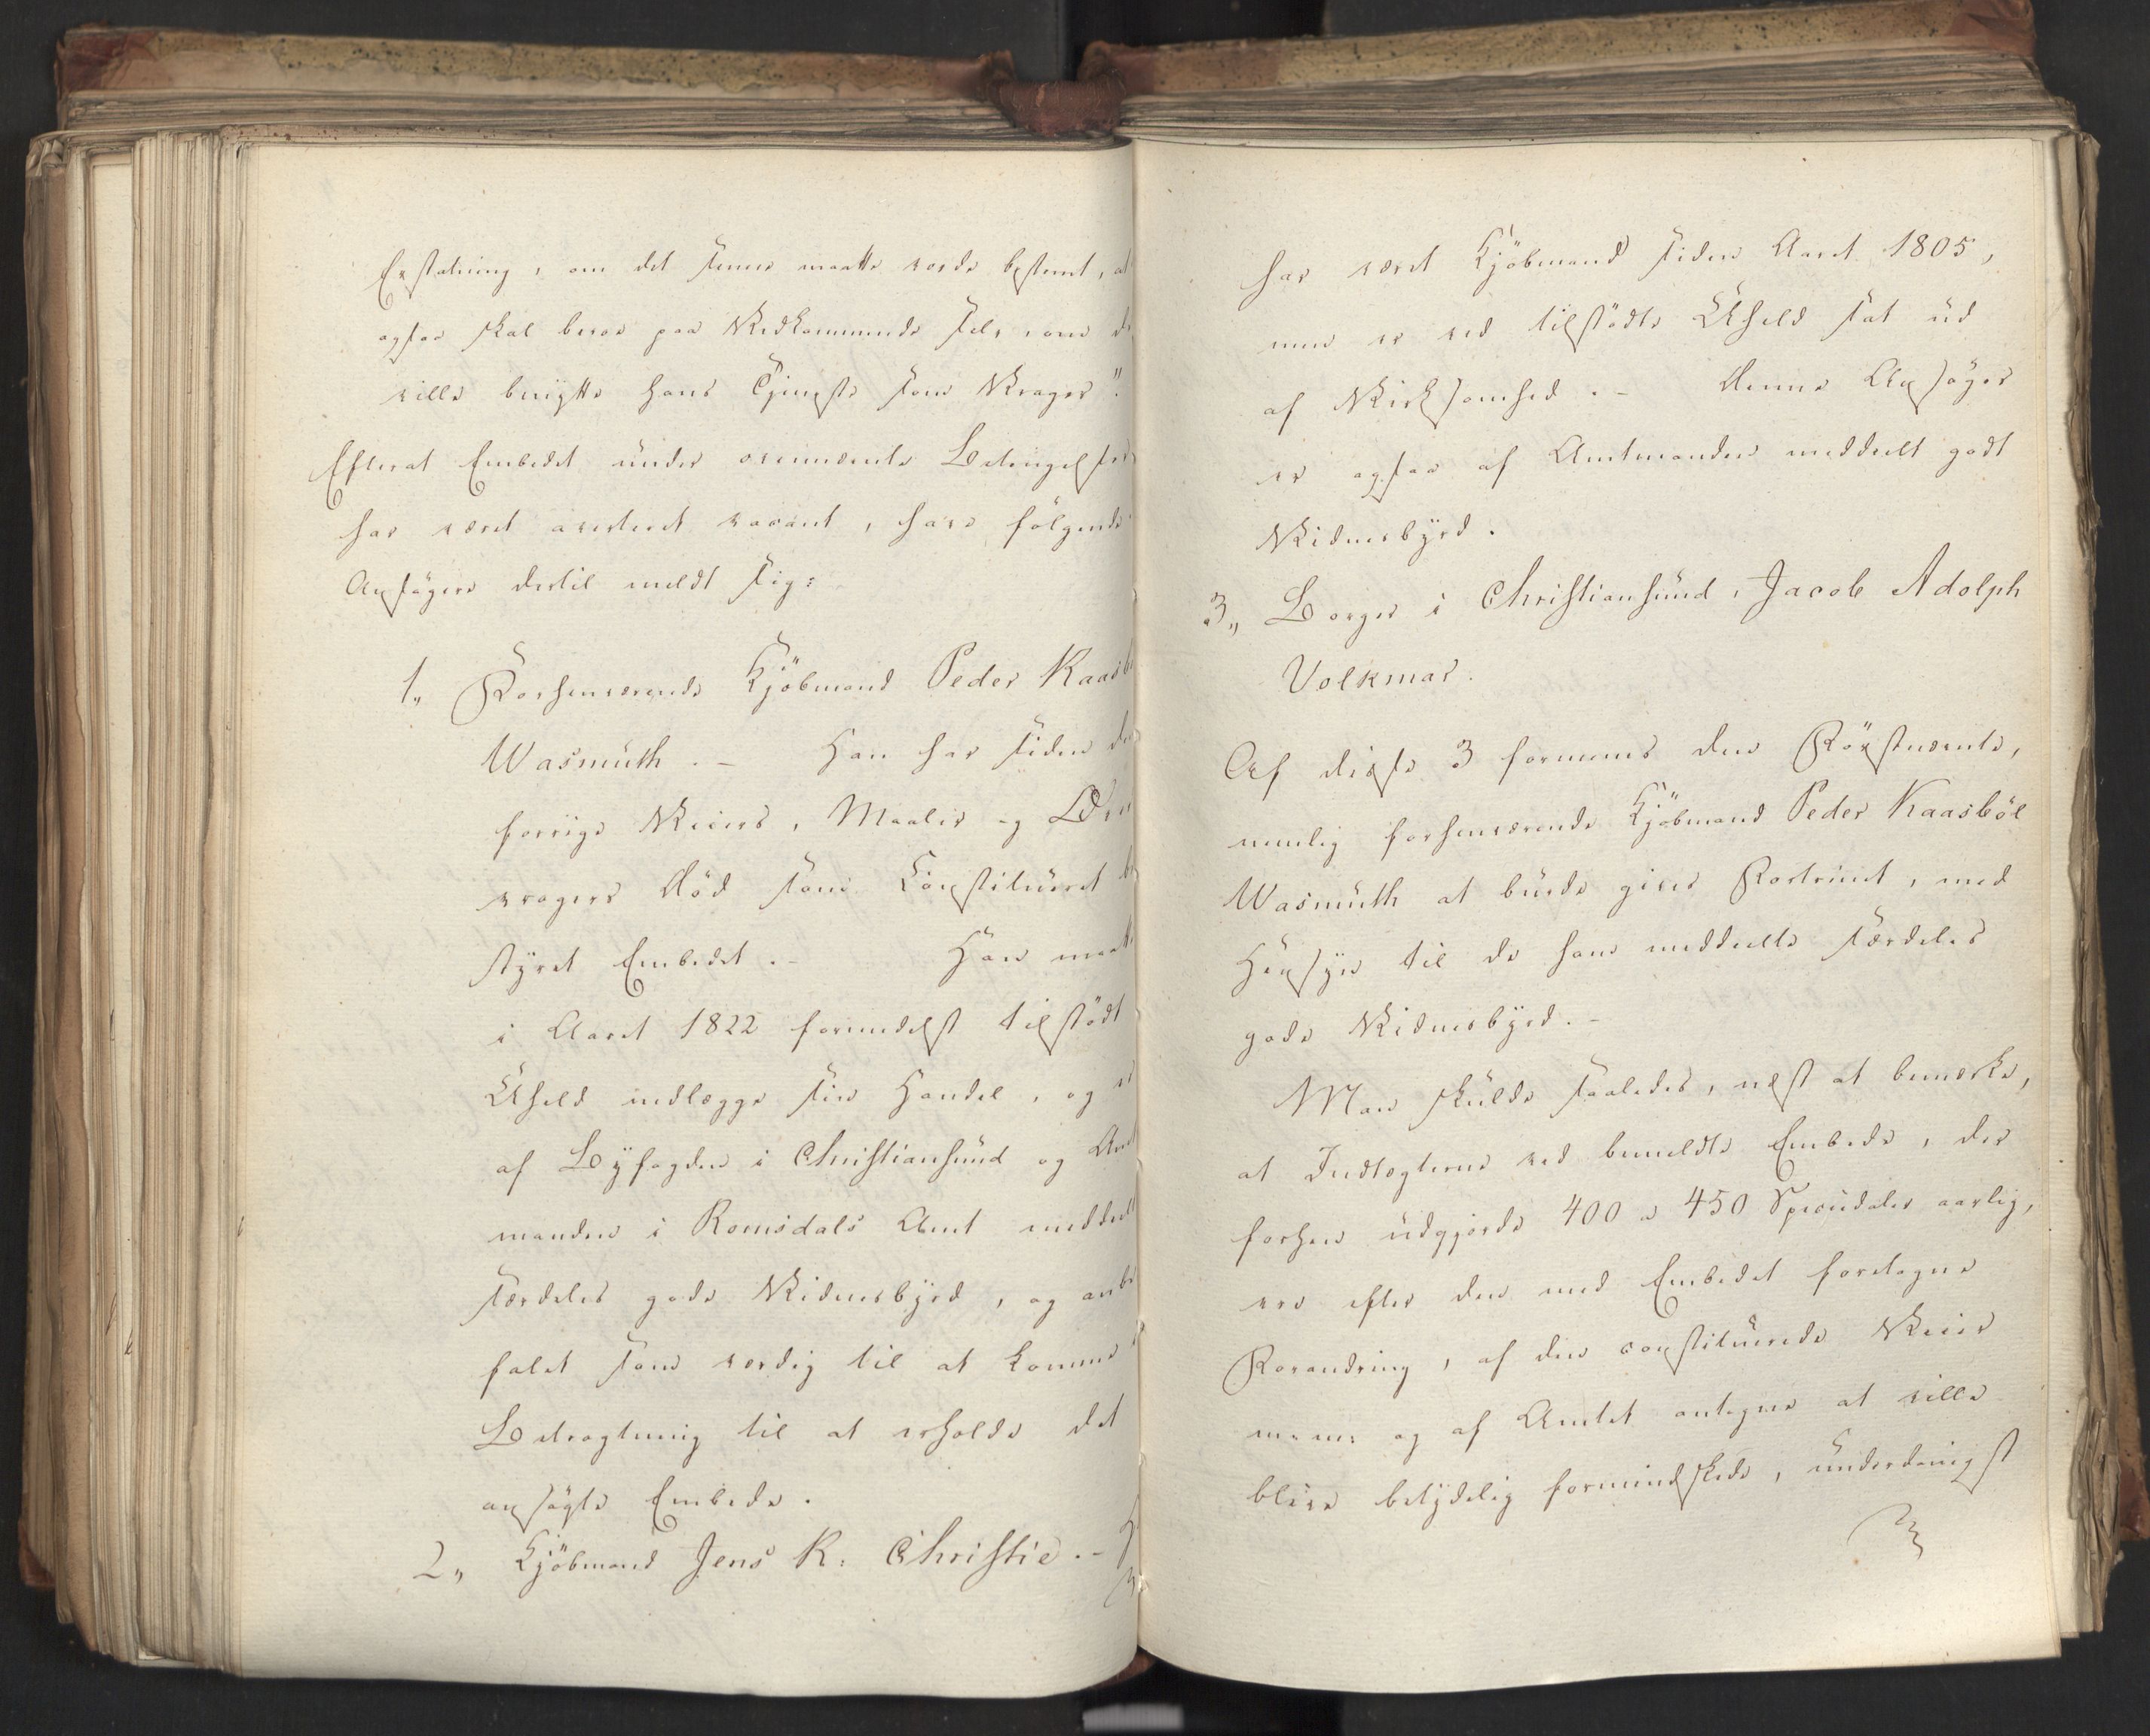 Erstatning, om det senere maatte vorde bestemt, at
ogsaa skal beroe paa Vedkommende selv, om de
ville benytte hans Tjeneste som Vrager".
Efterat Embedet under ovennævnte Betingelser
har været averteret vacant, have følgende
Ansøgere dertil meldt sig:
1„ Forhenværende Kjöbmand Peder Kaasb
Wasmuth. - Han har siden den
forrige Veiers, Maalers og
vragers Död som Constitueret be
styret Embedet. - Han maatte
i Aaret 1822 formedelst tilstödt
Uheld nedlægge sin Handel, og er
af Byfogden i Christiansund og Amt
manden i Romsdals Amt meddeelt
særdeles gode Vidnesbyrd, og anbe
falet som værdig til at komme i
Betragtning til at erholde det
ansögte Embede.
2„ Kjöbmand Jens K: Christie. - H
har været Kjöbmand siden Aaret 1805,
men er ved tilstödte Uheld sat ud
af Virksomhed. - Denne Ansöger
er ogsaa af Amtmanden meddeelt godt
Vidnesbyrd.
3„ Borger i Christiansund, Jacob Adolph
Volkmar.
Af disse 3 formenes den Förstnævnte,
nemlig forhenværende Kjöbmand Peder Kaasböl
Wasmuth at burde gives Fortrinet, med
Hensyn til de ham meddeelte særdeles
gode Vidnesbyrd. -
Man skulde saaledes, næst at bemærke,
at Indtægterne ved bemeldte Embede, der
forhen udgjorde 400 a 450 Speciedaler aarlig,
ere efter den med Embedet foretagne
Forandring, af den constituerede Veier
m: m: og af Amtet antagne at ville
blive betydelig formindskede, underdanigst